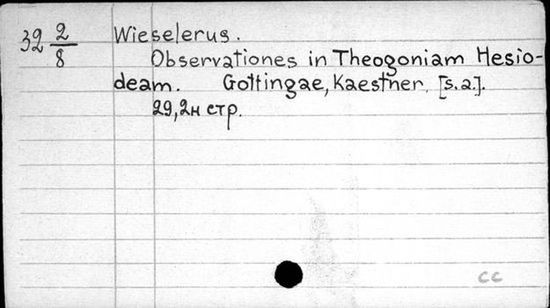 32 2/8 Wieselerus.
Observationes in Theogoniam Hesio-
deam. Gottingae, Kaestner, [s.a.].
29,2н стр.
cc